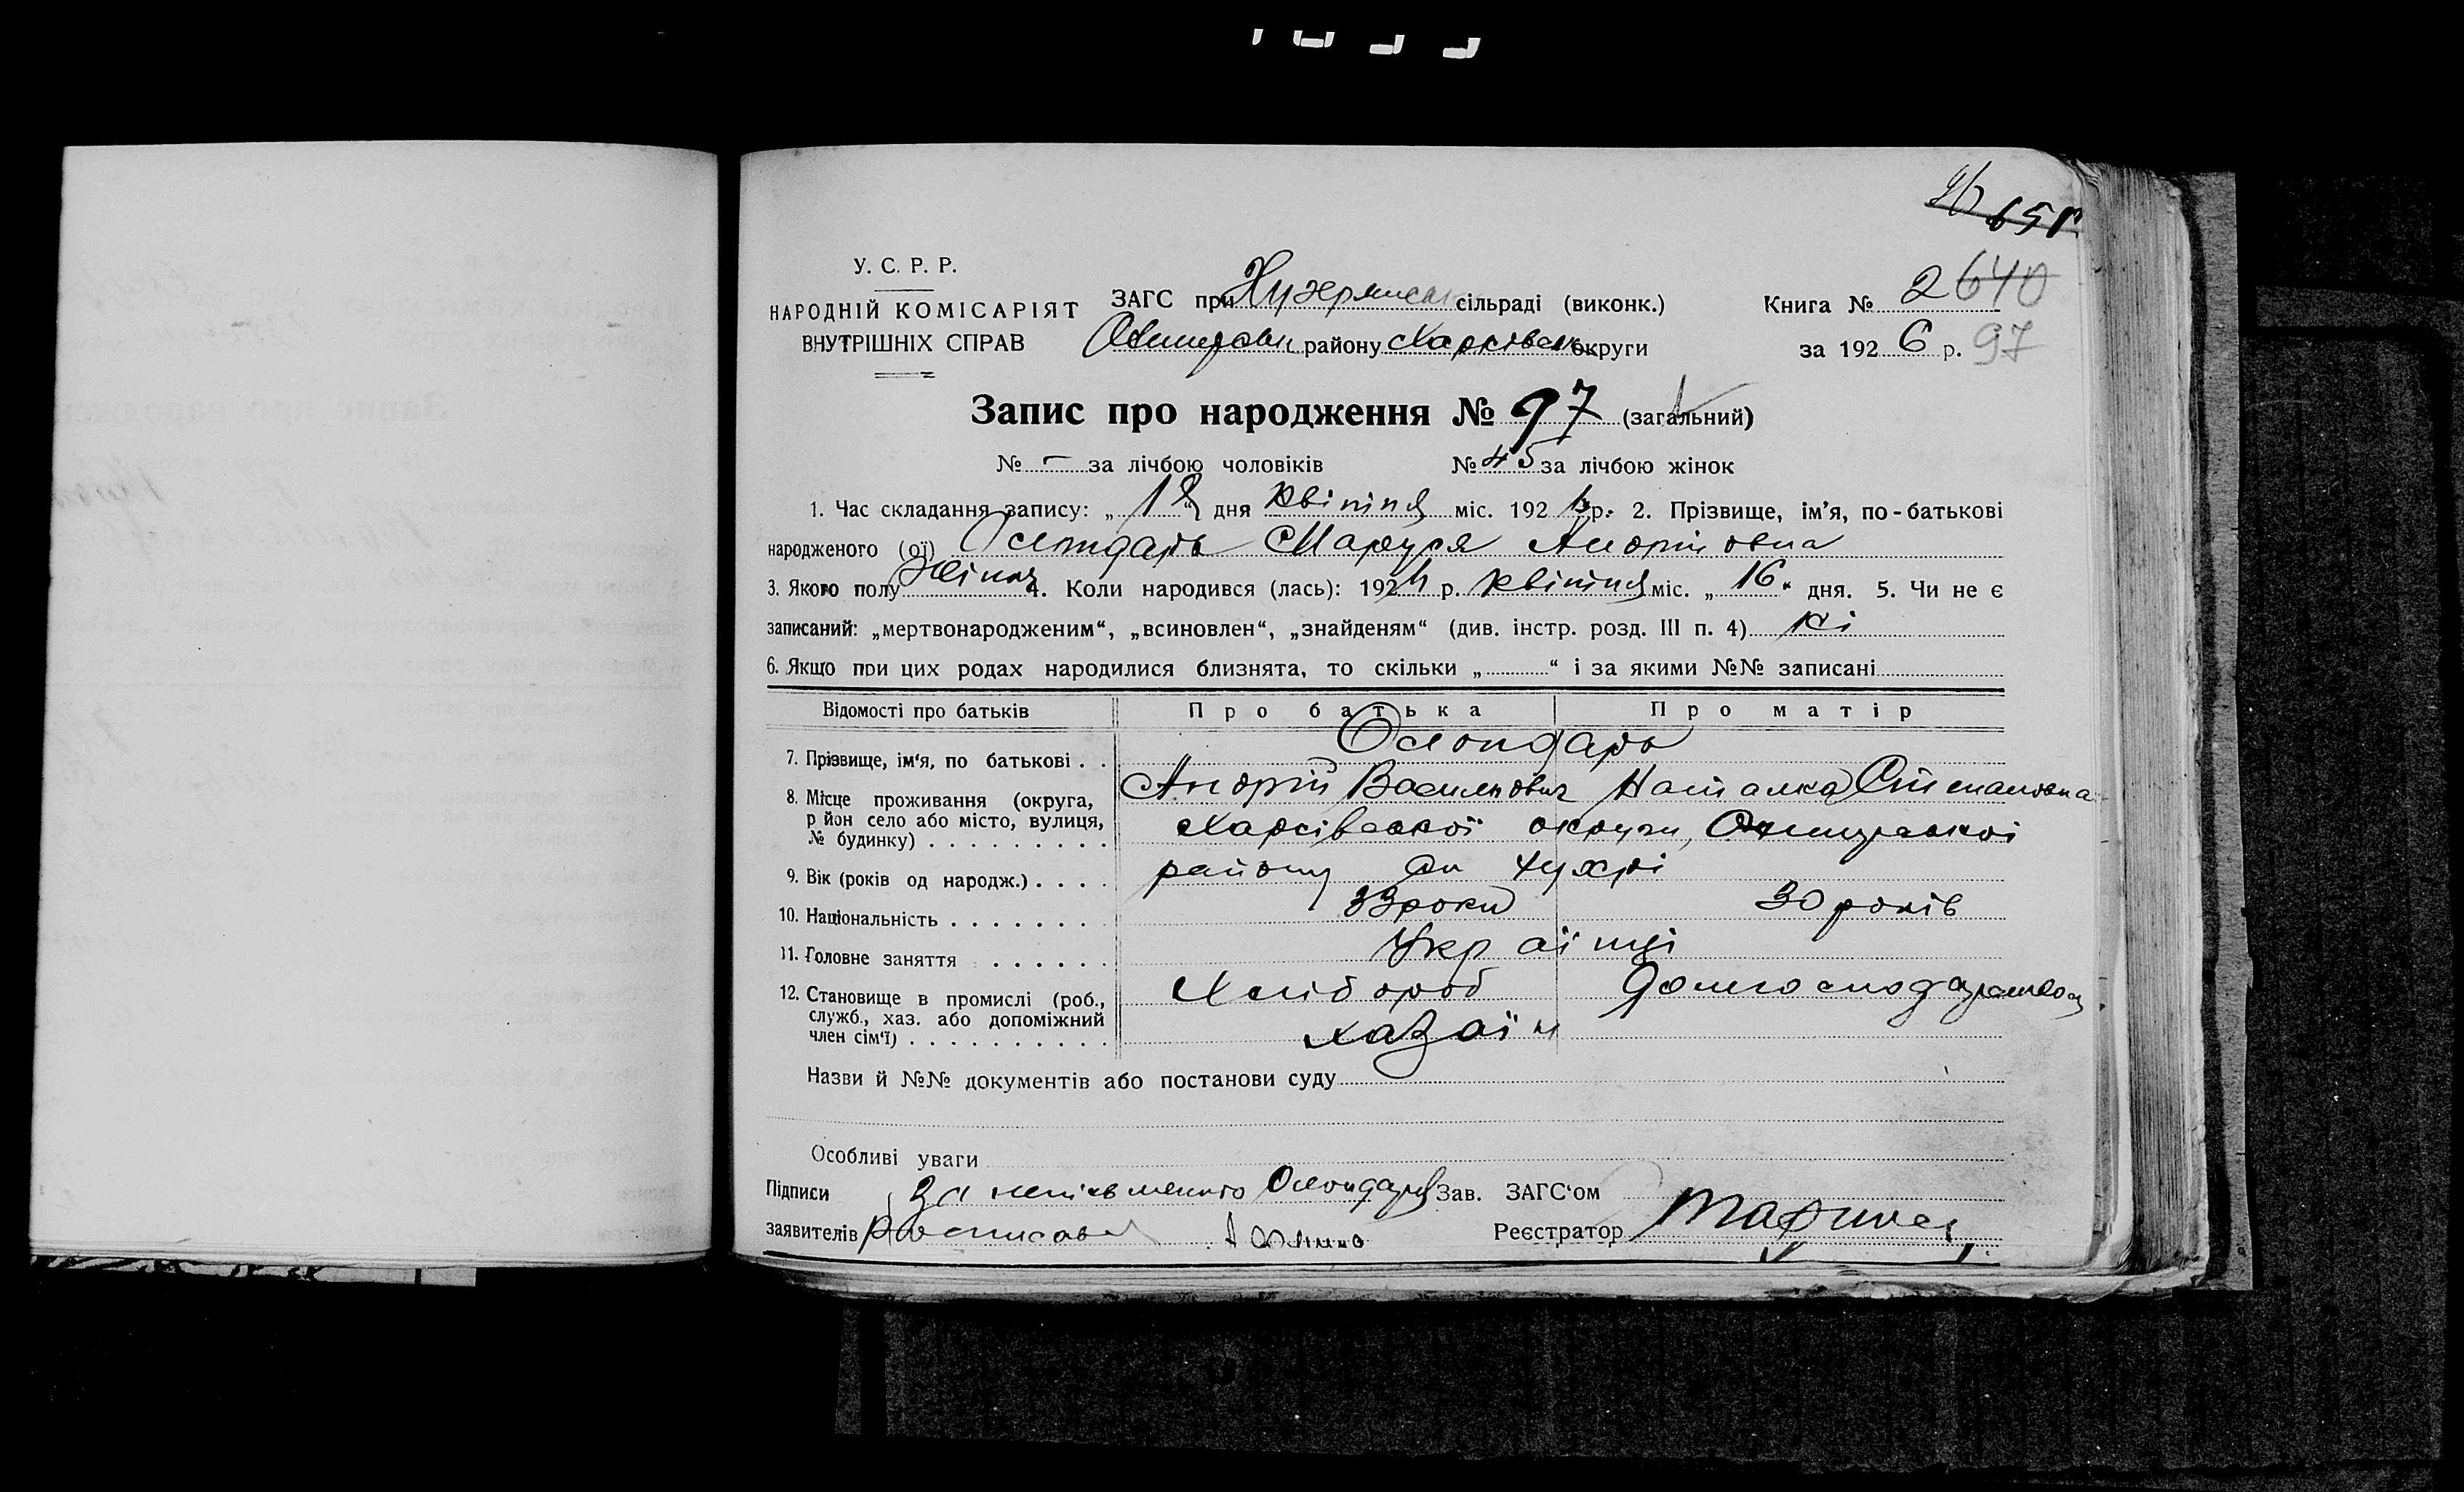 У. С. Р. Р.
НАРОДНІЙ КОМІСАРІЯТ
ВНУТРІШНІХ СПРАВ
ЗАГС при сільраді (виконк.)
району Харківськ округи
Книга № 2 640
за 192 6 р. 97
Запис про народження № 97 (загальний)
№ – за лічбою чоловіків № 45 за лічбою жінок
1. Час складання запису: „ 18 “ дня квітня міс. 192 6 р. 2. Прізвище, ім'я, по-батькові
народженого (ої) Маруся Андріївна
3. Якого полу Жіноч 4. Коли народився (лась): 192 р. квітня міс. „ 16 “ дня. 5. Чи не є
записаний: „мертвонародженим“, „всиновлен“, „знайденям“ (див. інстр. розд. III п. 4) ні
6. Якщо при цих родах народилися близнята, то скільки „ “ і за якими №№ записані
Відомості про батьків Про батька Про матір
7. Прізвище, ім'я, по батькові . .
Андрій Василнович Наталка Степановна
8. Місце проживання (округа,
р йон село або місто, вулиця,
№ будинку) . . . . . . . . .
Харківської округи,
району
9. Вік (років од народж.) . . . .
33 роки 30 років
10. Національність . . . . . . .
Українці
11. Головне заняття . . . . . .
Хлібороб
12. Становище в промислі (роб.,
служб., хаз. або допоміжний
член сім'ї) . . . . . . . . . .
хазаїн
Назви й №№ документів або постанови суду
Особливі уваги
Підписи За Зав. ЗАГС'ом
заявителів Реєстратор